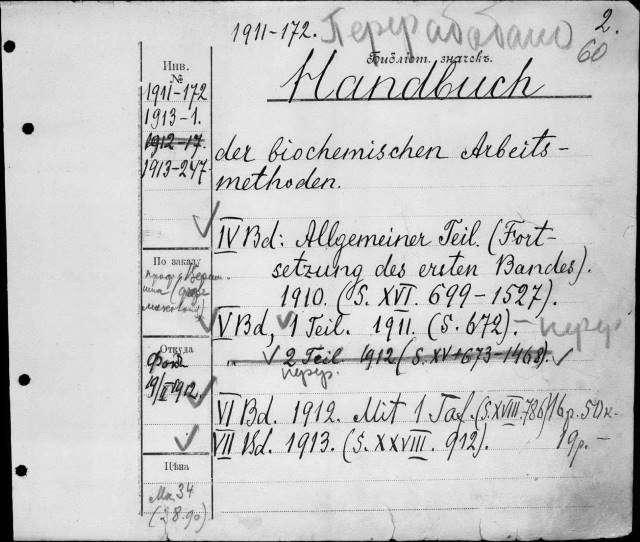 1911-172. Переработано 2.
60
Библіот. значекъ.
Handbuch
Инв.
№
1911-172
1913-1.
1912-17.
1913-247
der biochemischen Arbeits-
methoden.
IV Bd: Allgemeiner Teil. (Fort-
setzung des ersten Bandes).
1910. (S. XVI. 699-1527).
По заказу
V Bd, 1 Teil. 1911. (S. 672). - перер.
" 2 Teil 1912 (S. XV+673-1468).
перер.
Откуда
Фок
19/II 1912.
VI Bd. 1912. Mit 1 Taf. (S. XVIII. 786) 16р. 50к.
VII Bd. 1913. (S. XXVIII. 912). 19р. -
Цѣна
Мк. 34
(28.90)